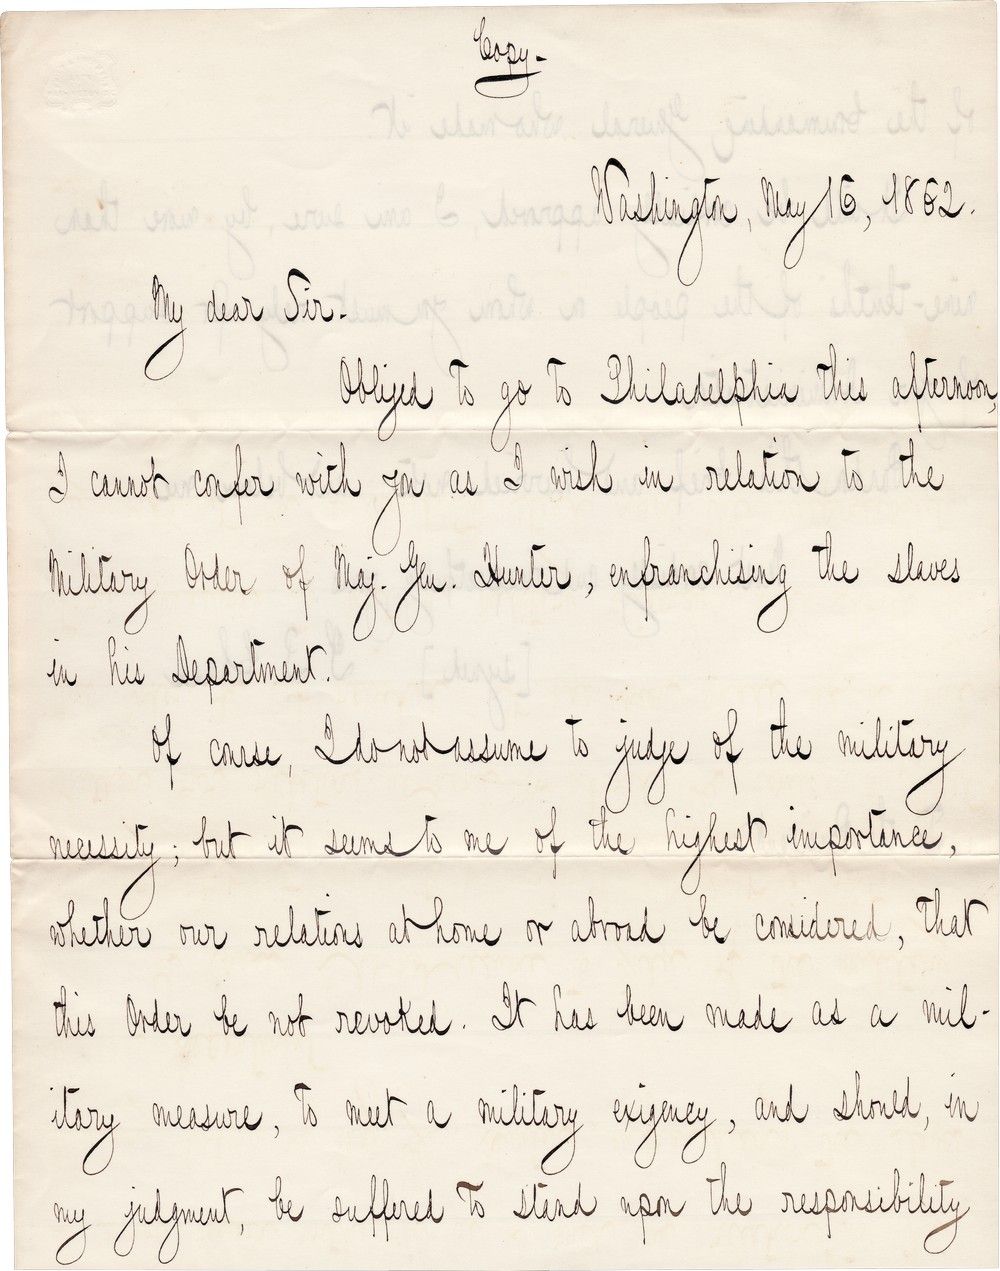 Copy.
Washington, May 16, 1862.
My dear Sir.
Obliged to go to Philadelphia this afternoon,
I cannot confer with you as I wish in relation to the
Military Order of Maj. Gen. Hunter, enfranchising the slaves
in his Department.
Of course, I do not assume to judge of the military
necessity; but it seems to me of the highest importance,
whether our relations at home or abroad be considered, that
this Order be not revoked. It has been made as a mil-
itary measure, to meet a military exigency, and should, in
my judgment, be suffered to stand upon the responsibility